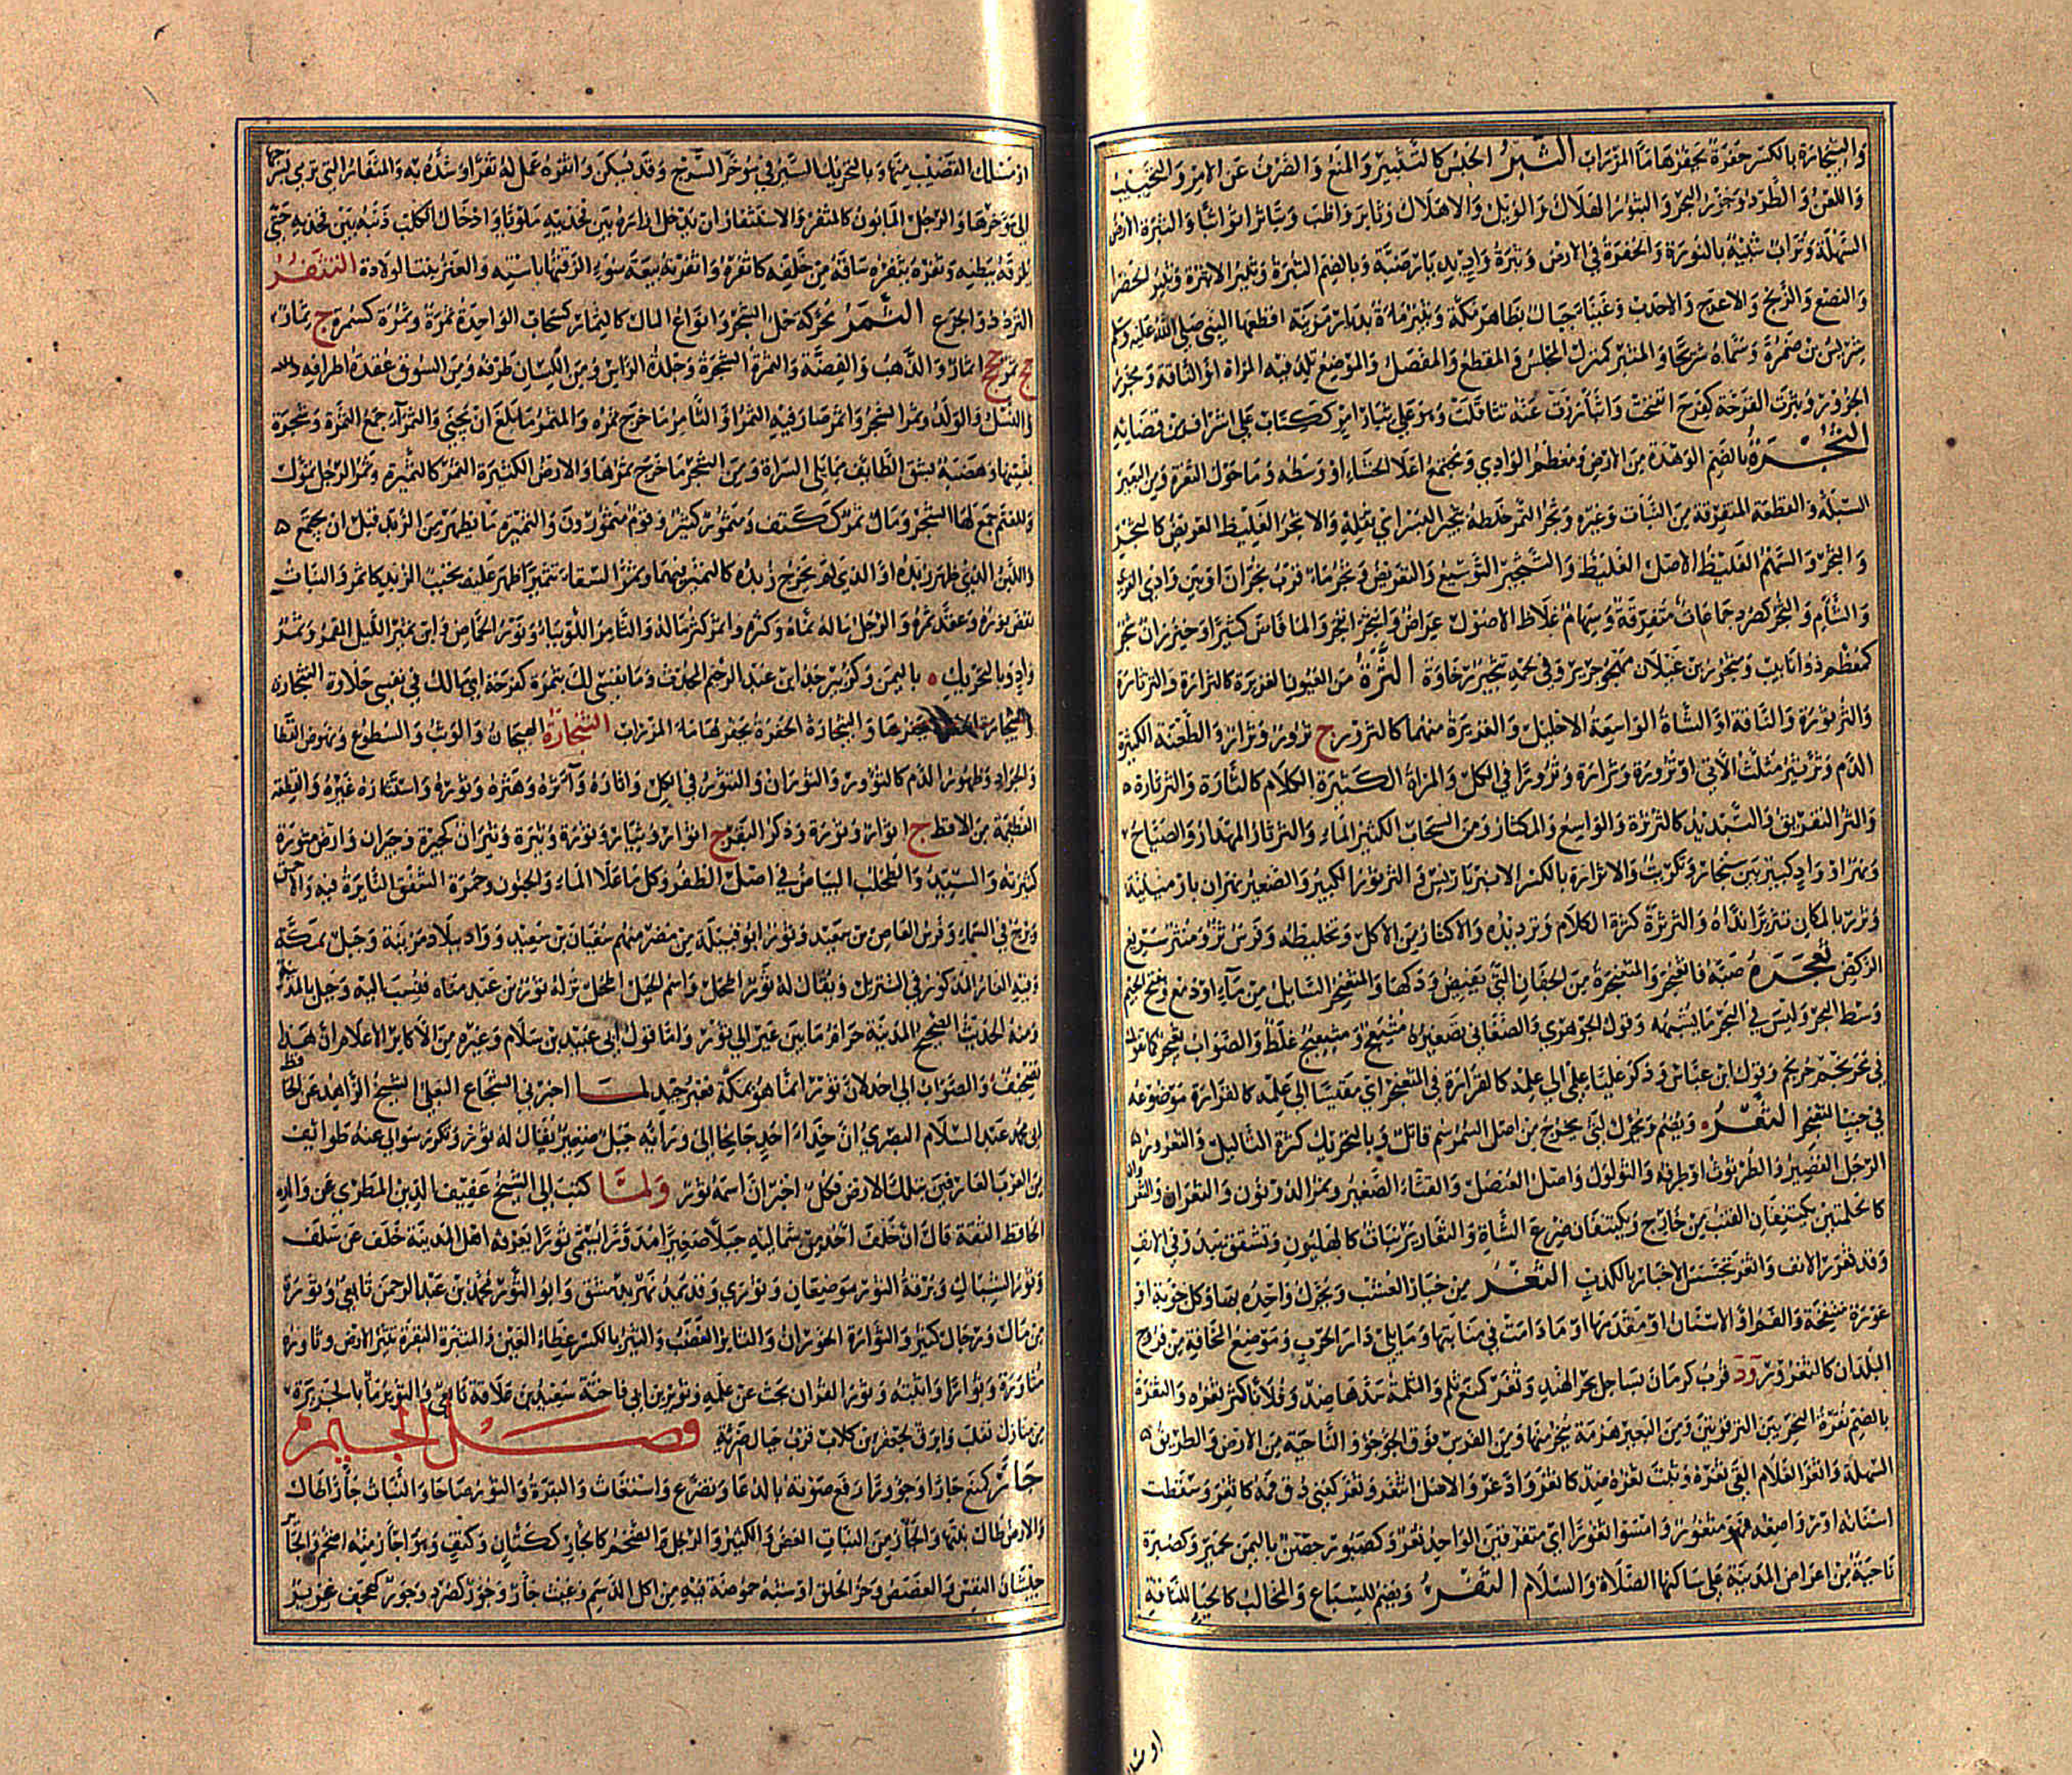 وَالثِّجَارَةُ بالكسر حُفرَةٌ يَحفِرُها مَاءُ المِيزاب الثَّبْرُ الحَبْسُ كالتَّثبيرِ وَالمَنعُ وَالصَّرفُ عَنِ الأمرِ وَالتَّخييبُ
وَاللَّعنُ وَالطَّردُ وَجَزرُ البحرِ وَالثُّبورُ الهَلاكُ وَالوَيلُ وَالإهلاكُ وثابَرَ وَاظَبَ وَتثابَرا تَواثَبا وَالثَّبرَةُ الأرضُ
السَّهلَةُ وتُرابٌ شَبيهٌ بالنُّورَةِ وَالحُفرَةُ في الأرضِ وثَبرَةُ وَادٍ بِدِيارِ ضَبَّةَ وَبالضَّمِ الصُّبرَةُ وثَبيرُ الأثبرَةِ وثَبيرُ الخَضراءِ
وَالنِّصعِ وَالزِّنجِ وَالأعرَجِ وَالأحدَبِ وَغَيناءَ جِبالٌ بظاهِرِ مَكَّةَ وَثَبيرٌ مَاءَةٌ بِديارِ مُزَينَةَ أقطَعَها النبيُّ صَلى اللهُ عَليهِ وَسلم
شِريسَ بنَ ضَمرَةَ وَسَمَّاهُ شُرَيحًا وَالمَثبِرُ كمَنزِلٍ المَجلِسُ وَالمَقطَعُ وَالمَفصِلُ وَالمَوضِعُ تَلِدُ فيهِ المرأةُ أوِ النَّاقةُ وَمَجزَرُ
الجَزُورِ وَثَبِرَتِ القَرحَةُ كفَرِحَ انفَتَحَت وَاثبَأرَرتُ عَنهُ تثاقَلتُ وَهوَ عَلى ثِبارِ أمرٍ كَكِتابٍ عَلى إشرافٍ مِن قَضائِهِ
الثُّجْرَةُ بالضَّمِ الوَهدَةُ مِنَ الأرضِ وَمُعظَمُ الوَادي وَمُجتَمَعُ أعلى الحَشا أو وَسَطُهُ وَمَا حَولَ الثُّغرَةِ وَمِنَ البَعيرِ
السَّبَلَةُ وَالقِطعَةُ المُتَفَرِّقَةُ مِنَ النَّباتِ وَغيرِه وَثَجَرَ التَّمرَ خَلَطَهُ بثَجيرِ البُسرِ أي ثُفلِهِ وَالأثجَرُ الغَليظُ العَريضُ كالثَّجِرِ
وَالثَّجرِ وَالسَّهمُ الغَليظُ الأصلِ الغَليظُ وَالتَّثجيرُ التَّوسيعُ وَالتَّعريضُ وَثَجرٌ مَاءٌ قُربَ نَجرانَ أو بَينَ وَادي القُرى
وَالشَّامِ وَالثُّجَرُ كصُرَدٍ جَماعَاتٌ مُتَفَرِّقَةٌ وَسِهامٌ غِلاظُ الأصولِ عِراضٌ وَانثَجَرَ انفَجَرَ وَالمَا فَاضَ كَثيرًا وَخَيزُرانٌ مُثَجَّرٌ
كمُعَظَّمٍ ذُو أنابيبَ وَمَثجُورُ بنُ غَيلانَ مَهجُوُّ جَريرٍ وَفي لَحمِهِ تَثجيرٌ رَخاوَةٌ الثَّرَّةُ مِنَ العُيونِ الغَزيرَةُ كالثَّرارَةِ وَالثَّرثارَةِ
وَالثُّرثورَةِ وَالنَّاقَةُ أوِ الشَّاةُ الوَاسِعَةُ الإحليلِ وَالغَزيرَةُ مِنهما كالثَّرورِ ج ثُرورٌ وَثِرارٌ وَالطَّعنَةُ الكَثيرَةُ
الدَّمِ وَثَرَّ يَثِرُّ مُثَلَّثَ الآتي ثُرورَةً وَثَرارَةً وَثُرورًا في الكُلِّ وَالمَرأةُ الكَثيرَةُ الكَلامِ كالثَّارَّةِ وَالثَّرثارَةِ
وَالثَّرُّ التَّفريقُ وَالتَّبديدُ كالثَّرثَرَةِ وَالوَاسِعُ وَالمِكثارُ وَمِنَ السَّحابِ الكَثيرُ المَاءِ وَالثَّرثارُ المِهذارُ وَالصَّيَّاحُ
وَنَهرٌ أو وَادٍ كَبيرٌ بَينَ سِنجارَ وَتَكريتَ وَالإثرارَةُ بالكسرِ الأنبرباريسُ وَالثُّرثورُ الكَبيرُ وَالصَّغيرُ نَهرانِ بأرمينيَةَ
وَثَرَّرَ بالمَكانِ تَثريرًا نَدَّاهُ وَالثَّرثَرَةُ كَثرَةُ الكَلامِ وَتَرديدُه وَالإكثارُ مِنَ الأكلِ وَتَخليطُهُ وَفَرَسٌ ثَرٌّ وَمُنثَرٌّ سَريعُ
الرَّكضِ ثَعْجَرَهُ صَبَّهُ فاثعَنجَرَ وَالمُثعَنجِرَةُ مِنَ الجِفانِ التي يَفيضُ وَدَكُها وَالمُثعَنجِرُ السَّائِلُ مِن مَاءٍ أو دَمعٍ وَبفتحِ الجيمِ
وَسَطُ البَحرِ وَلَيسَ في البَحرِ مَا يُشبِهُهُ وَقولُ الجوهري وَالصَّغاني تَصغيرُهُ مُثَيعِجٌ وَمُثَيعيجٌ غَلَطٌ وَالصَّوابُ ثُعَيجِرٌ كما تَقولُ
في مُحرَنجِمٍ حُرَيجِمٌ وَقولُ ابنِ عبَّاسٍ وَذَكَرَ عَليًّا عِلمي إلى عِلمِهِ كالقَرارَةِ في المُثعَنجَرِ أي مَقيسًا إلى عِلمِهِ كالقَرارَةِ مَوضوعَةً
في جَنبِ المُثعَنجَرِ الثَّعْرُ وَيُضَمُّ وَيُحَرَّكُ لَثًى يَخرُجُ مِن أصلِ السَّمُرِ سُمٌّ قاتِلٌ وَبالتَّحريكِ كَثرَةُ الثَّآليلِ وَالثُّعرورُ
الرَّجُلُ القَصيرُ وَالطُّرثوثُ أو طَرَفُهُ وَالثُّؤلولُ وَأصلُ العُنصُلِ وَالقِثَّاءُ الصَّغيرُ وَثَمَرُ الذُّؤنونِ وَالثُّعرُرانِ وَالثُّعرورانِ
كالحَلَمَتَينِ يَكتَنِفانِ القُنبَ مِن خارِجٍ وَيَكتَنِفانِ ضَرعَ الشَّاةِ وَالثَّعاريرُ نَباتٌ كالهِليَونِ وَتَشَقُّقٌ يَبدو في الأنفِ
وَقد ثَعرَرَ الأنفُ وَأثعَرَ تَجَسَّسَ الأخبارَ بالكَذِبِ الثَّغْرُ مِن خِيارِ العُشبِ وَيُحَرَّكُ وَاحِدُهُ بهاءٍ وَكلُّ جَوبَةٍ أو
عَورَةٍ مُنفَتِحَةٍ وَالفَمُ أوِ الأسنانُ أو مُقَدَّمُها أو مَا دامَت في مَنابِتِها وَمَا يَلي دارَ الحَربِ وَمَوضِعُ المَخافَةِ مِن فُروجِ
البُلدانِ كالثُّغرورِ وَد قُربَ كِرمانَ بساحِلِ بَحرِ الهِندِ وَثَغَرَ كمَنَعَ ثَلَمَ وَالثُّلمَةَ سَدَّها ضِدٌّ وَفُلانًا كَسَرَ ثَغرَهُ وَالثُّغرَةُ
بالضَّمِ نُقرَةُ النَّحرِ بَينَ التَّرقُوَتَينِ وَمِنَ البَعيرِ هَزمَةٌ يُنحَرُ مِنها وَمِنَ الفَرَسِ فَوقَ الجُؤجُؤِ وَالنَّاحيَةُ مِنَ الأرضِ وَالطَّريقُ
السَّهلَةُ وَأثغَرَ الغُلامُ ألقى ثَغرَهُ وَنَبَتَ ثَغرُهُ ضِدٌّ كاثَّغَرَ وَادَّغَرَ وَالأصلُ اثتَغَرَ وَثُغِرَ كعُنِيَ دُقَّ فَمُهُ كأُثغِرَ وَسَقَطَت
أسنانُهُ أو رَواضِعُهُ فهوَ مَثغورٌ وَأمسَوا ثُغورًا أي مُتَفَرِّقينَ الوَاحِدُ ثَغرٌ وَكصَبورٍ حِصنٌ باليَمَنِ لحِميَرَ وَكصُبرَةٍ
نَاحيَةٌ مِن أعراضِ المَدينَةِ عَلى سَاكِنِها الصَّلاةُ وَالسَّلامُ الثَّفْرُ وَيُضَمُّ للسِّباعِ وَالمَخالِبِ كالحَياءِ للنَّاقَةِ
أو مَسلَكُ القَضيبِ مِنها وَبالتَّحريكِ السَّيرُ في مُؤخَّرِ السَّرجِ وَقد يُسَكَّنُ وَأثفَرَهُ عَمِلَ لهُ ثَفَرًا أو شَدَّهُ بهِ وَالمِثفارُ التي تَرمي بسَرجِها
إلى مُؤَخَّرِها وَالرَّجُلُ المَأبونُ كالمِثفَرِ وَالاستِثفارُ أن يُدخِلَ إزارَهُ بَينَ فَخِذَيهِ مَلويًّا وَإدخالُ الكَلبِ ذَنَبَهُ بَينَ فَخِذَيهِ حَتى
يُلزِقَهُ ببَطنِهِ وَثَفَرَهُ يَثفِرُهُ سَاقَهُ مِن خَلفِهِ كأثفَرَهُ وَأثفَرتُهُ بَيعَةَ سَوءٍ ألزَقتُها باستِهِ وَالعَنزُ بَيَّنَت الوِلادَةَ التَّثَقُّرُ
التَّرَدُّدُ وَالجَزَعُ الثَّمَرُ مُحَرَّكَةً حَملُ الشَّجَرِ وَأنواعُ المَالِ كالثَّمارِ كسَحابٍ الوَاحِدَةُ ثَمَرَةٌ وَثَمُرَةٌ كسَمُرَةٍ ج ثِمارٌ
جج ثُمُرٌ ججج أثمارٌ وَالذَّهَبُ وَالفِضَّةُ وَالثَّمَرَةُ الشَّجَرَةُ وَجِلدَةُ الرَّأسِ وَمِنَ اللِّسانِ طَرَفُهُ وَمِنَ السَّوطِ عُقدَةُ أطرافِهِ
وَالنَّسلُ وَالوَلَدُ وَثَمَرَ الشَّجَرُ وَأثمَرَ صَارَ فيهِ الثَّمَرُ أوِ الثَّامِرُ مَا خَرَجَ ثَمَرُهُ وَالمُثمِرُ مَا بَلَغَ أن يُجنى وَالثَّمراءُ جَمعُ الثَّمَرَةِ وَشَجَرَةٌ
بعَينِها وَهَضبَةٌ بشِقِّ الطَّائِفِ مِمَّا يَلي السَّراةَ وَمِنَ الشَّجَرِ مَا خَرَجَ ثَمَرُها وَالأرضُ الكَثيرَةُ الثَّمَرِ كالثَّمِرَةِ وَثَمَرَ الرَّجُلُ تَمَوَّلَ
وَللغَنَمِ جَمَعَ لَها الشَّجَرَ وَمَالٌ ثَمِرٌ ككَتِفٍ وَمَثمورٌ كَثيرٌ وَقَومٌ مَثمورُونَ وَالثَّميرَةُ مَا يَظهَرُ مِنَ الزُّبدِ قَبلَ أن يَجتَمِعَ
وَاللَّبَنُ الذي ظَهَرَ زُبدُهُ أوِ الذي لَم يَخرُج زُبدُهُ كالثَّميرِ فيهما وَثَمَّرَ السِّقاءُ تَثميرًا ظَهَرَ عَليهِ تَحَبُّبُ الزُّبدِ كأثمَرَ وَالنَّباتُ
نَفَضَ نَورُهُ وَعَقَدَ ثَمَرُهُ وَالرَّجُلُ مَالَهُ نَمَّاهُ وَكَثَّرَهُ وَأثمَرَ كَثُرَ مَالُهُ وَالثَّامِرُ اللُّوبياءُ وَنَورُ الحُمَّاضِ وَابنُ ثَميرٍ اللَّيلُ القَمِرُ وَثَمرٌ
وَادٍ وَبالتَّحريكِ باليَمَنِ وَكزُبَيرٍ جَدُّ ابنِ عَبدِ الرَّحيمِ المحدِّثِ وَمَا نَفسي لَكَ بثَمِرَةٍ كفَرِحَةٍ أي مَا لَكَ في نَفسي حَلاوَةٌ الثِّنجارَةُ
يَحفِرُها وَالثِّبجارَةُ الحُفرَةُ يَحفِرُها مَاءُ المِزرابِ الثَّوْرُ الهَيَجانُ وَالوَثبُ وَالسُّطوعُ وَنُهوضُ القَطا
وَالجَرادِ وَظُهورُ الدَّمِ كالثُّؤُورِ وَالثَّوَرانِ وَالتَّثَوُّرِ في الكُلِّ وَأثارَهُ وَأثَرَهُ وَهَثَرَهُ وَثَوَّرَهُ وَاستَثارَهُ غَيرُهُ وَالقِطعَةُ
العَظيمَةُ مِنَ الأقِطِ ج أثوارٌ وَثِوَرَةٌ وَذَكَرُ البَقَرِ ج أثوارٌ وَثِيارٌ وَثِوَرَةٌ وَثِيَرَةٌ وَثيرانٌ كجِيرَةٍ وَجِيرانٍ وَأرضٌ مَثوَرَةٌ
كَثيرَتُهُ وَالسَّيِّدُ وَالطُّحلُبُ البَياضُ في أصلِ الظُّفُرِ وَكُلُّ مَا عَلا المَاءَ وَالجُنونُ وَحُمرَةُ الشَّفَقِ الثَّائِرَةُ فيهِ وَالأحمَقُ
وَبُرجٌ في السَّماءِ وَفَرَسُ العَاصِ بنِ سَعيدٍ وَثَورٌ أبو قَبيلَةٍ مِن مُضَرَ مِنهُم سُفيانُ بنُ سَعيدٍ وَوَادٍ ببِلادِ مُزَينَةَ وَجَبَلٌ بمَكَّةَ
وَفيهِ الغارُ المَذكورُ في التَّنزيلِ وَيُقالُ لهُ ثَورُ أطحَلَ وَاسمُ الجَبَلِ أطحَلُ نَزَلَهُ ثَورُ بنُ عَبدِ مَناةَ فنُسِبَ إليهِ وَجَبَلٌ بالمَدينَةِ
وَمِنهُ الحَديثُ الصَّحيحُ المَدينَةُ حَرامٌ مَا بَينَ عَيرٍ إلى ثَورٍ وَأمَّا قَولُ أبي عُبَيدِ بنِ سَلَّامٍ وَغَيرِهِ مِنَ الأكابِرِ الأعلامِ إنَّ هَذا
تَصحيفٌ وَالصَّوابُ إلى أُحُدٍ لأنَّ ثَورًا إنَّما هُوَ بمَكَّةَ فغَيرُ جَيِّدٍ لِمَا أخبَرَني الشُّجاعُ البَعليُّ الشَّيخُ الزَّاهِدُ عَنِ الحَافِظِ
أبي محمدٍ عَبدِ السَّلامِ البَصريِّ أنَّ حِذاءَ أُحُدٍ جانِحًا إلى وَرائِهِ جَبَلٌ صَغيرٌ يُقالُ لهُ ثَورٌ وَتَكَرَّرَ سُؤالي عَنهُ طَوائِفَ
مِنَ العَرَبِ العَارِفينَ بتِلكَ الأرضِ فكُلٌّ أخبَرَ أنَّ اسمَهُ ثَورٌ وَلمَّا كَتَبَ إلى الشَّيخُ عَفيفُ الدِّينِ المَطَريُّ عَن وَالِدِهِ
الحافِظِ الثِّقَةِ قَالَ إنَّ خَلفَ أُحُدٍ عَن شِمالِيهِ جَبَلًا صَغيرًا مُدَوَّرًا يُسَمَّى ثَورًا يَعرِفُهُ أهلُ المَدينَةِ خَلَفًا عَن سَلَفٍ
وَثَورُ الشِّباكِ وَبُرقَةُ الثَّورِ مَوضِعانِ وَثَورى وَقد يُمَدُّ نَهرٌ بدِمَشقَ وَأبو الثَّورَينِ محمدُ بنُ عَبدِ الرحمنِ تَابِعيٌّ وَثَورَةٌ
مِن مَالٍ وَرِجالٍ كَثيرٌ وَالثَّوَّارَةُ الخَوَّرانُ وَالثَّائِرُ الغَضَبُ وَالثِّيرُ بالكسرِ غِطاءُ العَينِ وَالمُثيرَةُ البَقَرَةُ تُثيرُ الأرضَ وَثاوَرَهُ
مُثاوَرَةً وَثِوارًا وَاثَبَهُ وَثَوَّرَ القُرآنَ بَحَثَ عَن عِلمِهِ وَثُوَيرُ بنُ أبي فاخِتَةَ سَعيدُ بنُ عِلاقَةَ تَابِعيٌّ وَالثُّوَيرُ مَاءٌ بالجَزيرَةِ
مِن مَنازِلِ تَغلِبَ وَأبرَقُ لجَعفَرِ بنِ كِلابٍ قُربَ جِبالِ ضَريَّةَ فصل الجيم
جَأَرَ كمَنَعَ جَأرًا وَجُؤارًا رَفَعَ صَوتَهُ بالدُّعا وَتَضَرَّعَ وَاستَغاثَ وَالبَقَرَةُ وَالثَّورُ صَاحَا وَالنَّباتُ جَأرًا طَالَ
وَالأرضُ طَالَ نَبتُها وَالجَأرُ مِنَ النَّباتِ الغَضُّ وَالكَثيرُ وَالرَّجُلُ الضَّخمُ كالجَأَّرِ ككَتَّانٍ وَكَتِفٍ وَهوَ أجأرُ مِنهُ أضخَمُ وَالجَائِرُ
جَيَشانُ النَّفسِ وَالغَصَصُ وَحَرُّ الحَلقِ أو شِبهُ حُموضَةٍ فيهِ مِن أكلِ الدَّسَمِ وَغَيثٌ جَأرٌ وَجُؤَرٌ كصُرَدٍ وَجِوَرٌّ كهِجَفٍّ غَزيرٌ